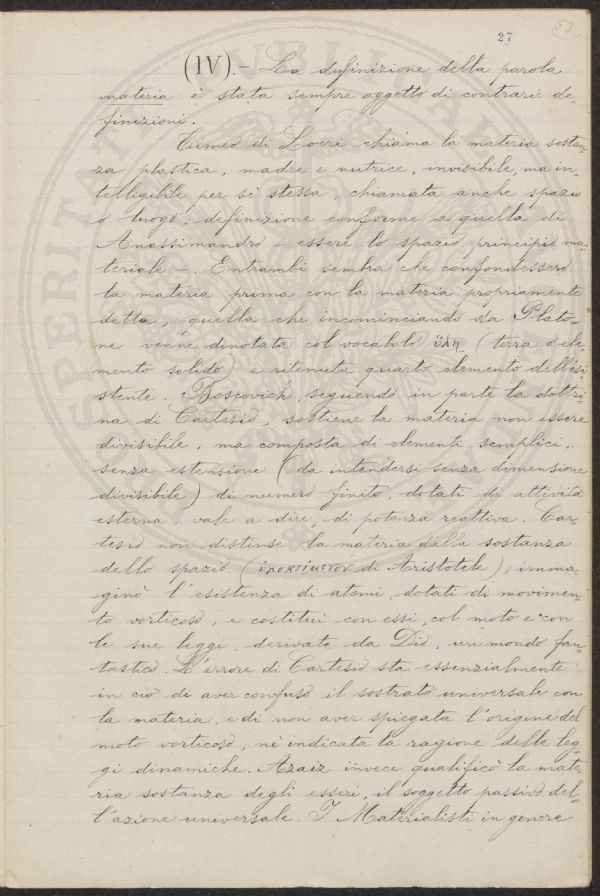 53
27
(IV). – La definizione della parola
materia è stata sempre oggetto di contrarie de-
finizioni.
Timeo di Locri chiama la materia sostan-
za plastica, madre e nutrice, invisibile, ma in-
telligibile per sè stessa, chiamata anche spazio
o luogo; definizione conforme a quella di
Anassimandro – essere lo spazio principio ma-
teriale –. Entranbi sembra che confondessero
la materia prima con la materia propriamente
detta, quella che incominciando da Plato-
ne venne dinotata col vocabolo ὕλη (terra o ele-
mento solido) e ritenuta quarto elemento dell'esi-
stente. Boscovich, seguendo in parte la dottri-
na di Cartesio, sostiene la materia non essere
divisibile, ma composta di elementi semplici,
senza estensione (da intendersi senza dimensione
divisibile) di numero finito, dotati di attività
esterna, vale a dire, di potenza reattiva. Car-
tesio non distinse la materia dalla sostanza
dello spazio (ὑποκείμενον di Aristotele); imma-
ginò l'esistenza di atomi, dotati di movimen-
to vorticoso, e costituì con essi, col moto e con
le sue leggi, derivate da Dio, un mondo fan-
tastico. L'errore di Cartesio sta essenzialmente
in ciò di aver confuso il sostrato universale con
la materia, e di non aver spiegata l'origine del
moto vorticoso, nè indicata la ragione delle leg-
gi dinamiche. Azaiz invece qualificò la mate-
ria sostanza degli esseri, il soggetto passivo del-
l'azione universale. I Materialisti in genere